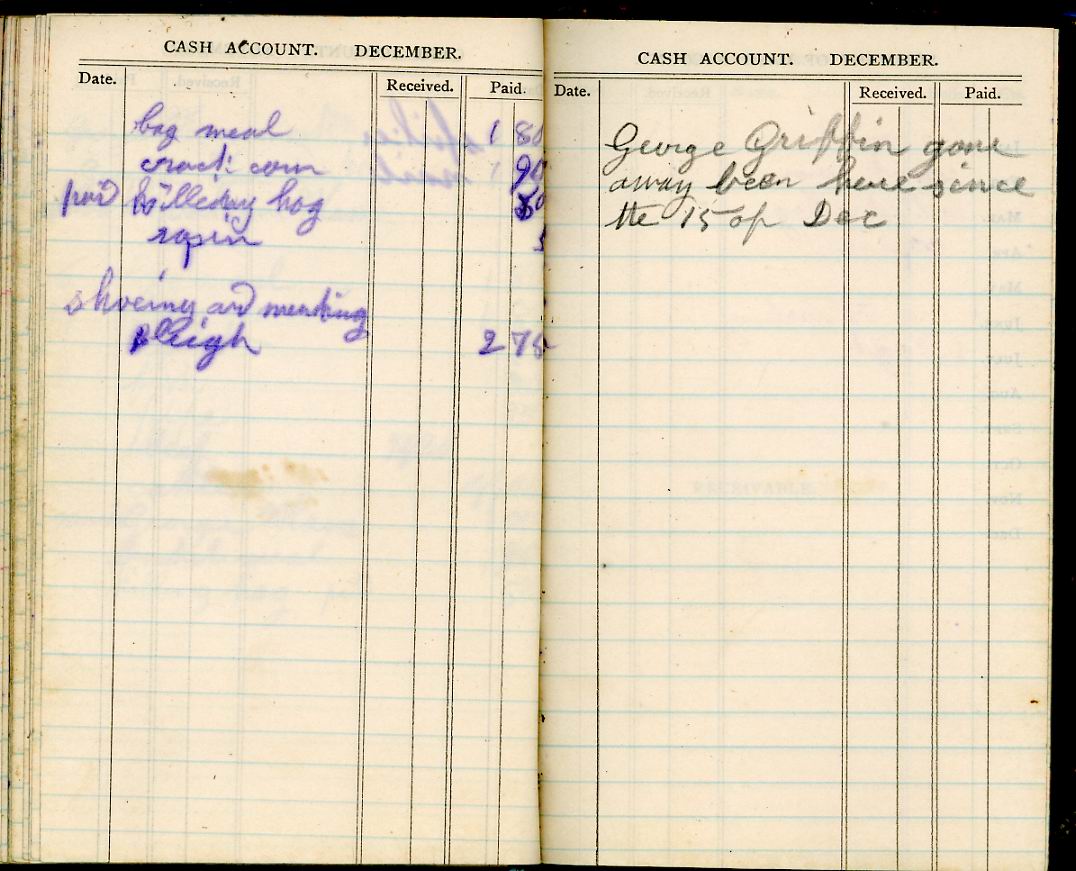 CASH ACCOUNT. DECEMBER.
Date. Received. Paid.
bag meal 1 80
crack corn 90
paid killeday hog
rosin
shoeing and mending
sleigh 2 75
CASH ACCOUNT. DECEMBER.
Date. Received. Paid.
George Griffin gone
away been here since
the 15 of Dec